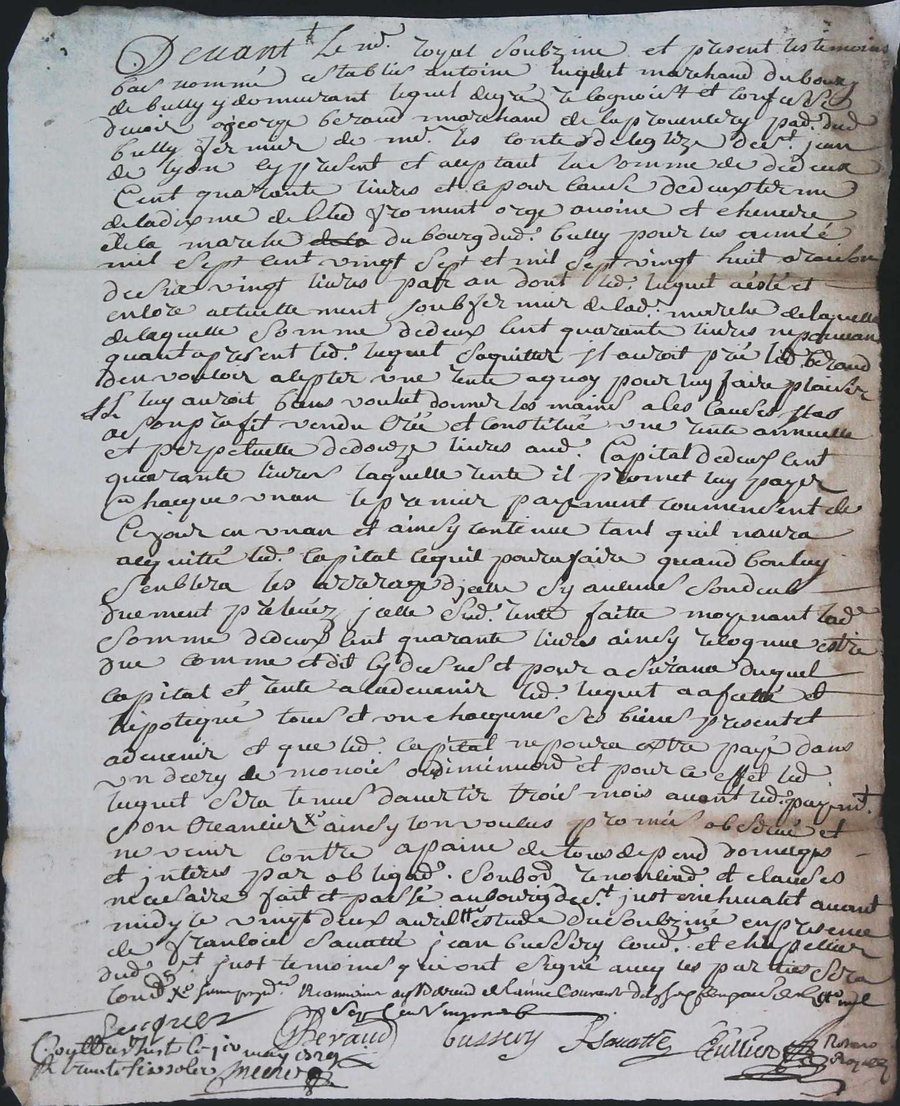 Devant Le no.re royal soubzine et present les temoins
bas nommé est establis antoine luquet marchand du bourg
de bully y demeurant lequel de gré recognoist et confesse
devoir a george beraud marchand de la pad. dud
bully fermier de mr. les contes deleglize de st. jean
de lyon cy present et aceptant la somme de de deux
Cent quarante livres et ce pour cause de deux terme
de la dixme de bled froment orge avoine et cheneve
de la marche du bourg dud. bully pour les année
mil sept cent vingt sept et mil sept vingt huit a raison
de six vingt livres par an dont led. luquet a esté et
encore actuellement soubfermier de lad. marche de laquelle
de laquelle somme de deux cent quarante livres ne pouvant
quant a present led. luquet saquitter il auroit prié led. beraud
den vouloir acepter une rente a quoy pour luy faire plaisir
il luy auroit bien voulut donner les mains a les causes il a
a son profit vendu créé et constitué une rente annuelle
et perpetuelle de douze livres aud. Capital de deux cent
quarante livres laquelle rente il promet luy payer
Chacque un an le premier payement commensent de
Ce jour en un an et ainsy continue tant quil naura
acquitté led. Capital ce quil poura faire quand bon luy
semblera les arrerage dicelle sy aucunes sont deub
duement preleuéz icelle sud. rente faitte moyenant lad.
somme de deux cent quarante livres ainsy recognue estre
due comme est dit cy dessus et pour asurance duquel
capital et rente a ladvenir led. luquet a afecté et
hipotequé tous et un chacquuns ses biens present et
advenir et que led. Capital ne poura estre payé dans
un decry de monois ou diminuond et pour ce effet led
luquet sera tenus davertir trois mois avant led. payemt.
son creancier ainsy lon voulus promis observé et
ne venir contre a paine de tous depend domages
et interis par obligaon. soubon renomiaon et clauses
necesaire fait et passé au bourg de st. just avant
midy le vingt deux avril estude du soubzine en presence
de francois sauatte jean bussery cord. et chapellier
dud. st just temoins qui ont signé avec les parties sera
luquet
GBeraud bussery fsauatte Cuttier
Con.lle a st Just le may 1729
R trente six soles